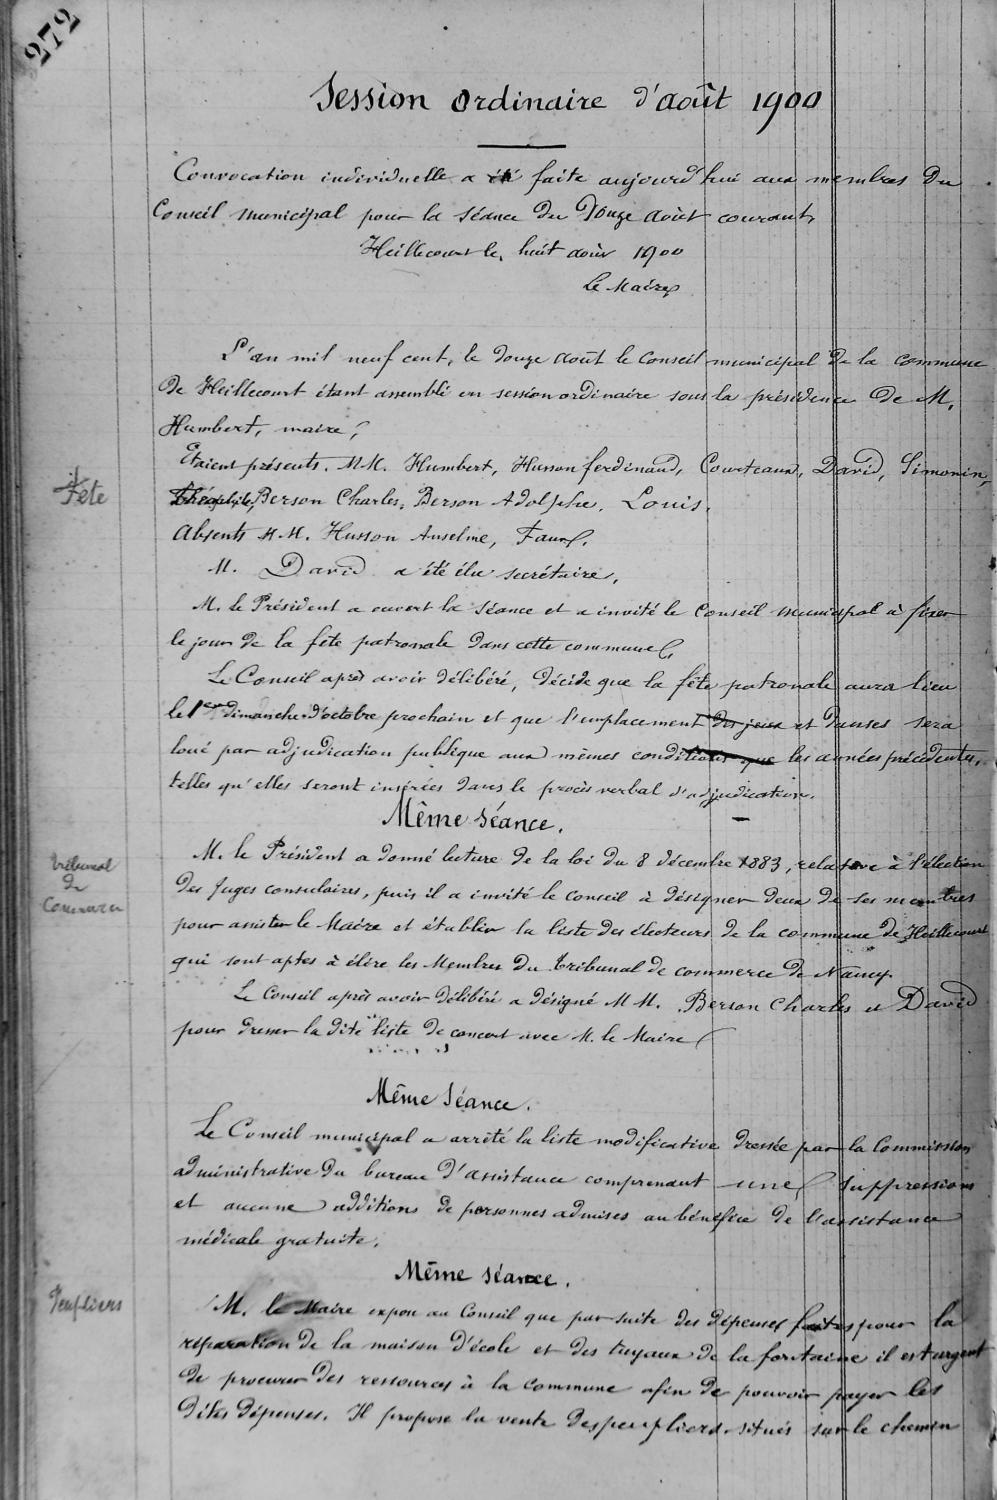 272
Session ordinaire d'août 1900
Convocation individuelle a été faite aujourd'hui aux membres du
Conseil municipal pour la séance du Douze août courant,
Heillecourt le, huit août 1900
Le Maire,
L'an mil neuf cent, le douze août le Conseil municipal de la commune
de Heillecourt étant assemblé en session ordinaire sous la présidence de M.
Humbert, maire,
Etaient présents. MM. Humbert, Husson ferdinand, Courteaux, David, Simonin,
Fête
Théophile, Berson Charles, Berson Adolphe, Louis.
Absents MM. Husson Anselme,
M. David a été élu secrétaire,
M. le Président a ouvert la séance et a invité le Conseil municipal à fixer
le jour de la fête patronale dans cette commune,
Le Conseil après avoir délibéré, décide que la fête patronale aura lieu
le 1er dimanche d'octobre prochain et que l'emplacement des jeux et danses sera
loué par adjudication publique aux mêmes conditions que les années précédentes,
telles qu'elles seront insérées dans le procès verbal d'adjudication.
Même Séance.
Tribunal
de
Commerce
M. le Président a donné lecture de la loi du 8 décembre 1883, relative à l'élection
des Juges consulaires, puis il a invité le conseil à désigner deux de ses membres
pour assister le Maire et établir la liste des électeurs de la commune de Heillecourt
qui sont aptes à élire les Membres du Tribunal de commerce de Nancy.
Le Conseil après avoir délibéré a désigné MM. Berson Charles et David
pour dresser la dite liste de concert avec M. le Maire
Même Séance.
Le Conseil municipal a arrêté la liste modificative dressée par la Commission
administrative du bureau d'assistance comprenant une suppressions
et aucune additions de personnes admises au bénéfice de l'assistance
médicale gratuite.
Même séance.
Peupliers
M. le Maire expou au Conseil que par suite des dépenses faites pour la
réparation de la maison d'école et des tuyaux de la fontaine il est urgent
de procurer des ressources à la commune afin de pouvoir payer les
dites dépenses. Il propose la vente des peupliers situés sur le chemin